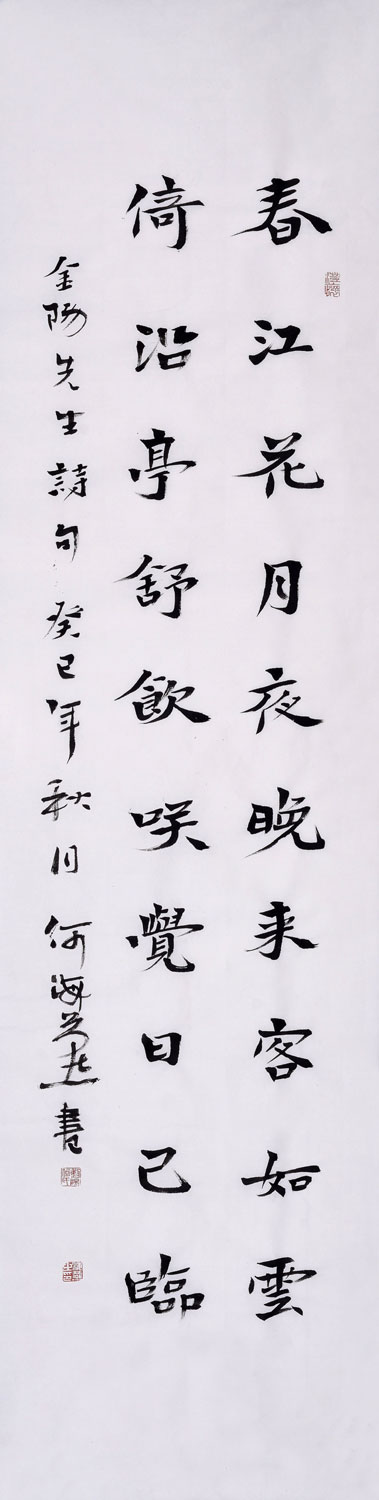 春江花月夜晚来客如雲
倚沿亭舒飲咲覺日已臨
金陽先生詩句癸巳年秋月何海燕書